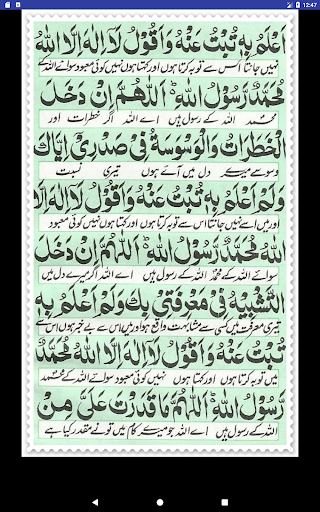 12:47
اَعْلَمُ بِهٖ تُبْتُ عَنْهُ وَاَقُوْلُ لَآ اِلٰهَ اِلَّا اللهُ
نہیں جانتا اس سے توبہ کرتا ہوں اور کہتا ہوں نہیں کوئی معبود سوائے اللہ کے
مُحَمَّدٌ رَّسُوْلُ اللهِ اَللّٰهُمَّ اِنْ دَخَلَ
محمد اللہ کے رسول ہیں اے اللہ اگر خطرات اور
الْخَطَرَاتُ وَالْوَسْوَسَةُ فِیْ صَدْرِیْ اِیَّاكَ
وسوسے میرے دل میں آئے ہوں تیری نسبت
وَلَمْ اَعْلَمْ بِهٖ تُبْتُ عَنْهُ وَاَقُوْلُ لَآ اِلٰهَ اِلَّا
اور میں اسے نہیں جانتا اس سے توبہ کرتا ہوں اور کہتا ہوں نہیں کوئی معبود
اللهُ مُحَمَّدٌ رَّسُوْلُ اللهِ اَللّٰهُمَّ اِنْ دَخَلَ
سوائے اللہ کے محمد اللہ کے رسول ہیں اے اللہ اگر میرے دل میں
التَّشْبِیْهُ فِیْ مَعْرِفَتِیْ بِكَ وَلَمْ اَعْلَمْ بِهٖ
تیری معرفت میں کسی سے مشابہت واقع ہو اور میں اس سے بے خبر ہوں اس سے
تُبْتُ عَنْهُ وَاَقُوْلُ لَآ اِلٰهَ اِلَّا اللهُ مُحَمَّدٌ
میں توبہ کرتا ہوں اور کہتا ہوں نہیں کوئی معبود سوائے اللہ کے محمد
رَّسُوْلُ اللهِ اَللّٰهُمَّ مَا قَدَّرْتَ عَلَیَّ مِنْ
اللہ کے رسول ہیں اے اللہ جو میرے کام میں تو نے مقدر کیا ہے